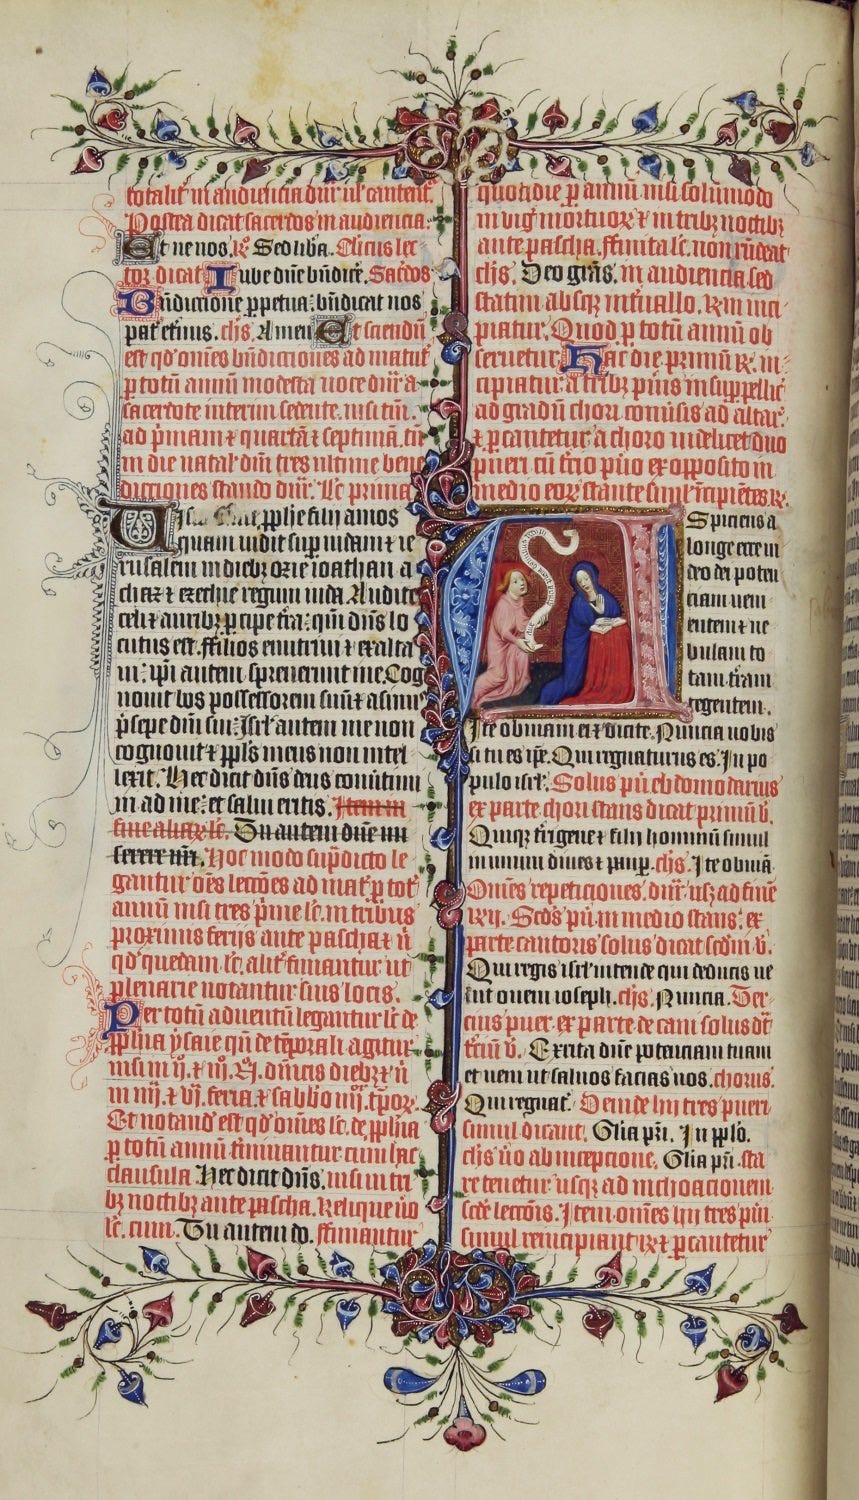 totalit' in audiencia dūr ul' cantent'.
Postea dicat sacerdos in audiencia.
Et ne nos. R̷. Sed liba. Clicus lec-
tor dicat Iube dūe bn̄dicē. Sacdos
Bn̄dictione ppetua: bn̄dicat nos
pat' et'nus. cl̄is. Amen. Et sciendū
est qd' om̄es bn̄dicciones ad matut'
p totū annū modesta uoce dūr a
sacerdote interim sedente. nisi tm̄.
ad pimam & quartā & septimā. tm̄
in die natal' dm̄i tres ultime bene
dicciones stando dūr. Lc̄ prima
pphe filii amos
quam uidit sup iudam & ie
rusalem in dieb; ozie ioathan a
chaz & ezechie regum iuda. Audite
celi & aurib; pcipe t'ra: qm̄ dn̄s lo
cutus est. Filios enutriui & exalta
ui: ip̄i autem spreuerunt me. Cog
nouit bos possessorem suū & asinus
p̄sepe dm̄i sui: isrl' autem me non
cognouit & ppl̄s meus non intel
lexit. Hec dicit dn̄s deus conūtimi
ni ad me: et salui eritis. Item in
fine alius lc̄. Tu autem dn̄e mi
serere nr̄i. Hoc modo sup̄dicto le
gantur om̄s lecc̄oes ad mat' p tot'
annū nisi tres p'me lc̄. in tribus
proximis ferijs ante pascha & ū
qd' quedam lc̄. alit' t'minantur ut
plenarie notantur suis locis.
Per totū aduentū legantur lc̄ de
pphia ysaie qn̄ de tēporali agitur
nisi in ij. & iij. N̄. dn̄icis dieb; & ū
in iiij. & vj. feria. & sabb̄o iiij. tp̄or.
Et notand' est qd' om̄es lc̄. de pphia
p totū annū t'minantur cum hac
clausula. Hec dicit dn̄s. nisi in tri
b; noctib; ante pascha. Relique ūo
lc̄. cum. Tu autem do. Finiantur
quotidie p annū nisi solūmodo
in vig' mortuor; & in trib; noctib;
ante pascha. Finita lc̄. non rn̄deat
cl̄is. Deo grās. in audiencia sed
statim absq; int'uallo. R̷m inci
piatur. Quod p totū annū ob
seruetur. Hac die primū R̷. in-
cipiatur a trib; pu'is in suppellic'
ad gradū chori conu'sis ad altar'.
& pcantetur a choro uidelicet duo
pueri cū t'cio pu'o ex opposito in
medio eor; stante simul īcipiētes R̷.
Aspiciens a
longe ecce ui
deo dei poten
ciam ueni
entem & ne
bulam to
tam t'ram
tegentem.
Ite obuiam ei & dicite. Nuncia nobis
si tu es ip̄e. Qui regnaturus es. In po
pulo isrl'. Solus pu' ebdomodarius
ex parte chori stans dicat primū v̄.
Quiq; t'rigene & filii hominū simul
in unum diues & paup. cl̄is. Ite obuiā.
Om̄es repeticiones. dūr. usq; ad finē
R̷ij. Sc̄ds pu'. in medio stans. ex
parte cantoris solus dicat sc̄dm v̄.
Qui regis isrl' intende qui deducis ue
lut ouem ioseph. cl̄is. Nuncia. Ter-
cius puer. ex parte decani solus dt̄
t'ciū v̄. Excita dn̄e potenciam tuam
et ueni ut saluos facias nos. chorus.
Qui regnat'. Deinde hij tres pueri
simul dicant. Gl̄ia pr̄i. In ppl̄o.
cl̄is ūo ab incepcione. Gl̄ia pr̄i. sta
re tenetur usq; ad inchoacionem
sc̄de lecc̄ois. Item om̄es hij tres pu'i
simul reincipiant R̷ & pcantetur